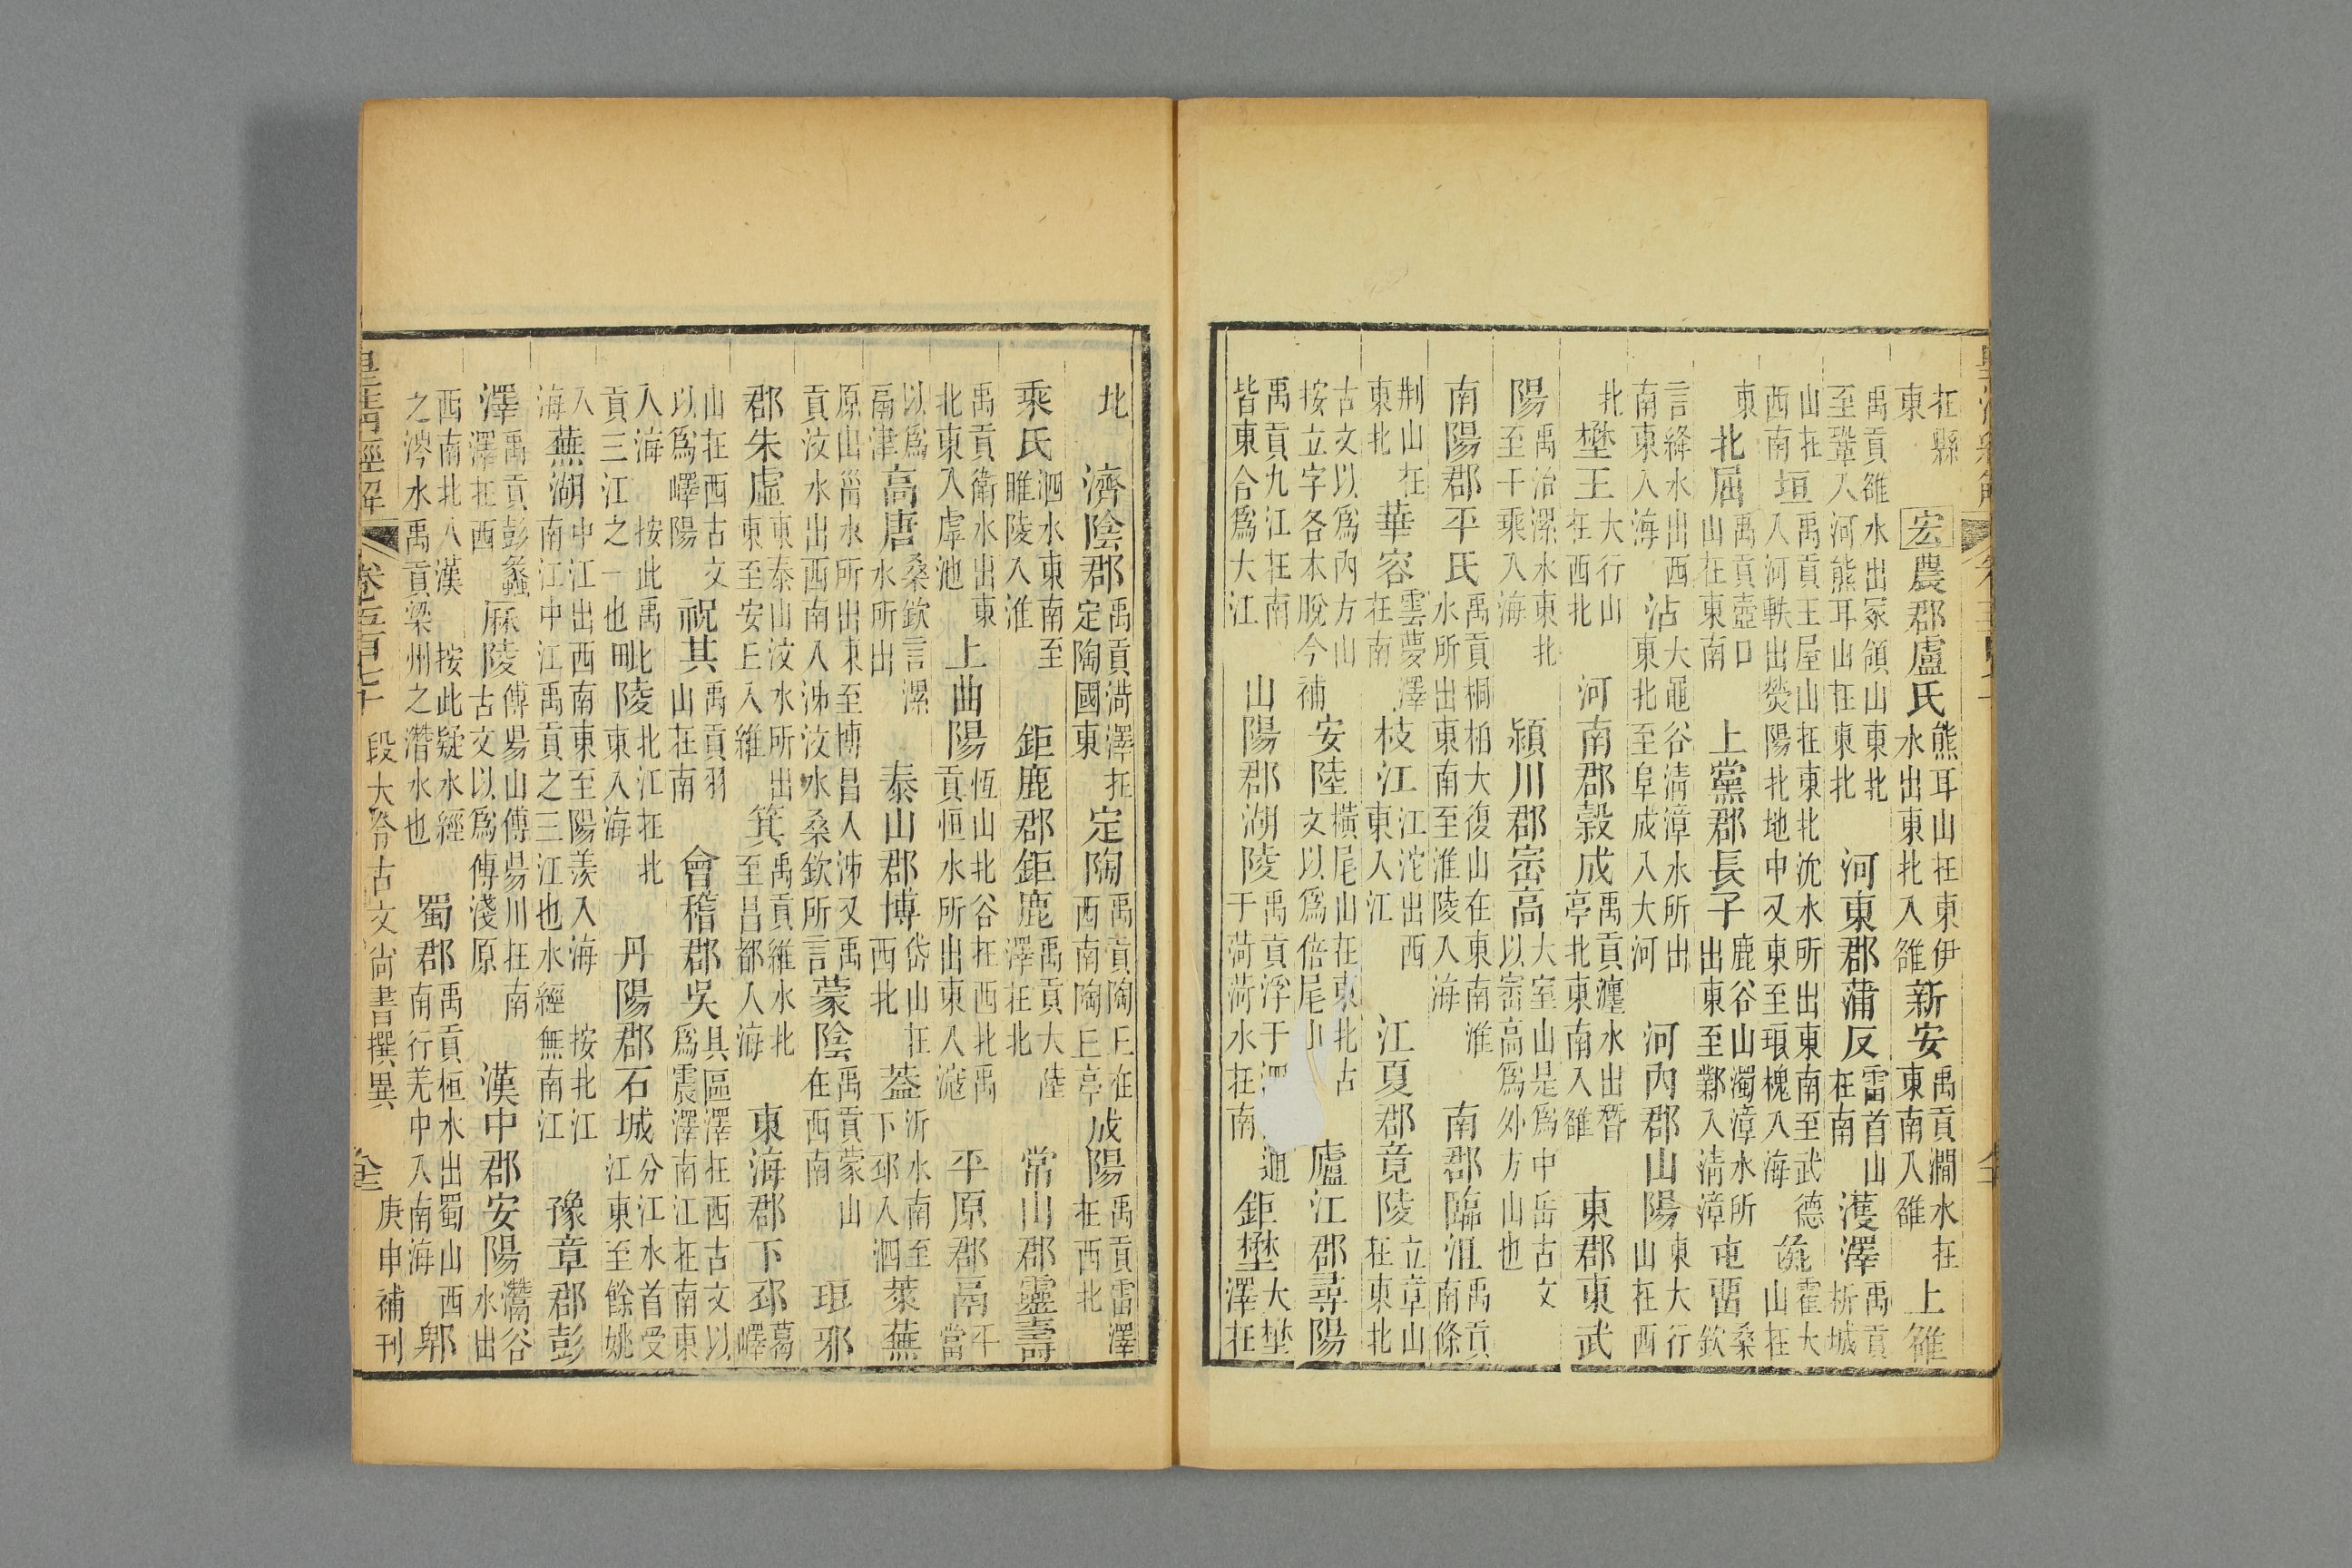 在縣東宏農郡盧氏熊耳山在東伊水出東北入雒新安禹貢澗水在東南入雒上雒
禹貢雒水出冢領山東北至鞏入河熊耳山在東北河東郡蒲反雷首山在南濩澤禹貢析城
山在西南垣禹貢王屋山在東北沇水所出東南至武德入河軼出熒陽北地中又東至琅槐入海彘霍大山在
東北屈禹貢壺口山在東南上黨郡長子鹿谷山濁漳水所出東至鄴入淸漳屯畱桑欽
言絳水出西南東入海沾大黽谷淸漳水所出東北至阜成入大河河內郡山陽東大行山在西
北壄王大行山在西北河南郡穀成禹貢瀍水出朁亭北東南入雒東郡東武
陽禹治漯水東北至千乘入海潁川郡崈高大室山是爲中岳古文以崈高爲外方山也
南陽郡平氏禹貢桐柏大復山在東南淮水所出東南至淮陵入海南郡臨沮禹貢南條
荆山在東北華容雲夢澤在南枝江江沱出西東入江江夏郡竟陵立章山在東北
古文以爲內方山按立字各本脫今補安陸橫尾山在東北古文以爲倍尾山廬江郡尋陽
禹貢九江在南皆東合爲大江山陽郡湖陵禹貢浮于通于菏菏水在南鉅壄大壄澤在
北濟陰郡禹貢菏澤在定陶國東定陶禹貢陶丘在西南陶丘亭成陽禹貢雷澤在西北
乘氏泗水東南至睢陵入淮鉅鹿郡鉅鹿禹貢大陸澤在北常山郡靈壽
禹貢衛水出東北東入虖池上曲陽恆山北谷在西北禹貢恒水所出東入滱平原郡鬲平當
以爲鬲津高唐桑欽言漯水所出泰山郡博岱山在西北葢沂水南至下邳入泗萊蕪
原山甾水所出東至博昌入泲又禹貢汶水出西南入泲汶水桑欽所言蒙陰禹貢蒙山在西南琅邪
郡朱虛東泰山汶水所出東至安丘入維箕禹貢維水北至昌都入海東海郡下邳葛嶧
山在西古文以爲嶧陽祝其禹貢羽山在南會稽郡吳具區澤在西古文以爲震澤南江在南東
入海按此禹貢三江之一也毗陵北江在北東入海丹陽郡石城分江水首受江東至餘姚
入海蕪湖中江出西南東至陽羨入海按北江南江中江禹貢之三江也水經無南江豫章郡彭
澤禹貢彭蠡澤在西厤陵傅昜山傅昜川在南古文以爲傅淺原漢中郡安陽灊谷水出
西南北入漢按此疑水經之涔水禹貢梁州之灊水也蜀郡禹貢桓水出蜀山西南行羌中入南海郫
皇淸經解 卷五百七十 段大令古文尚書撰異 庚申補刊